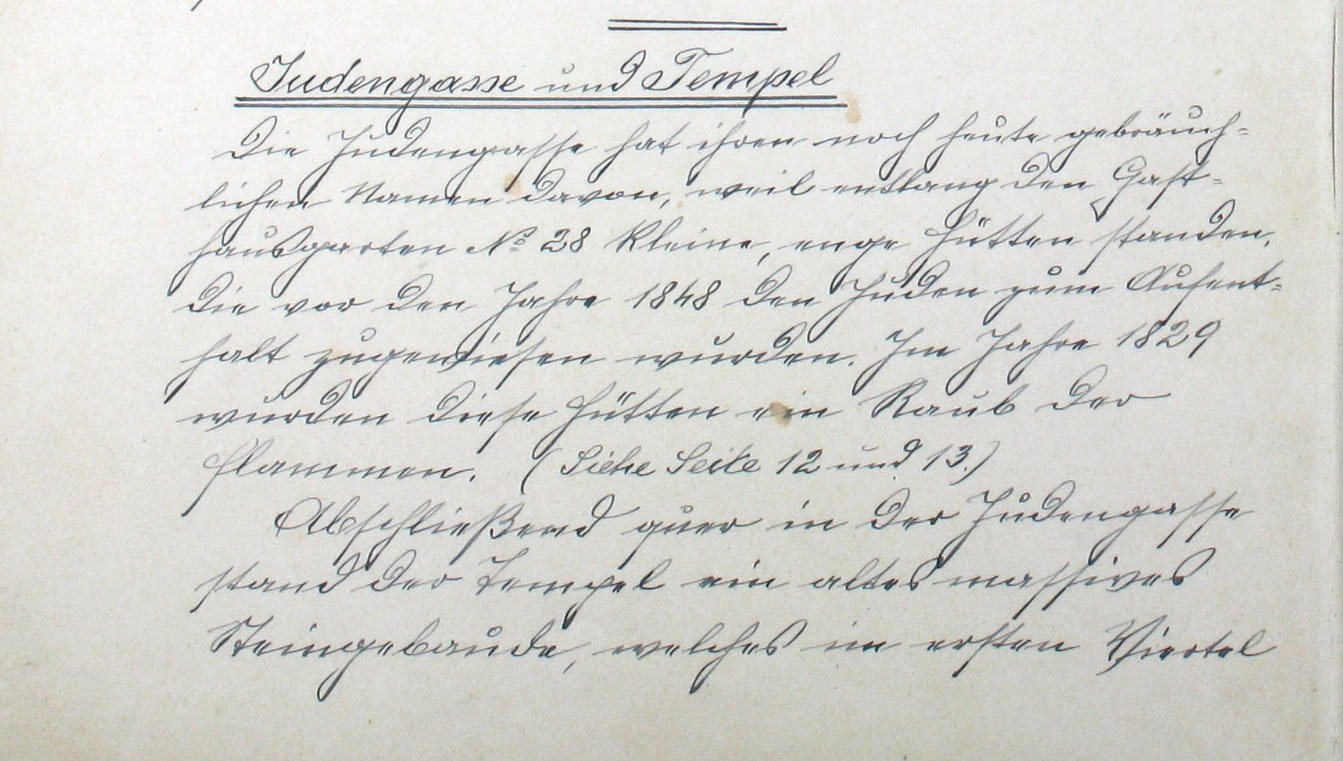 Judengasse und Tempel
Die Judengasse hat ihren noch heute gebräuch-
lichen Namen davon, weil entlang den Gast-
hausgarten No 28 kleine, enge Hütten standen,
die vor den Jahre 1848 den Juden zum Aufent-
halt zugewiesen wurden. Im Jahre 1829
wurden diese Hütten ein Raub der
Flammen. (Siehe Seite 12 und 13.)
Abschließend quer in der Judengasse
stand der Tempel ein altes massives
Steingebaude, welches im ersten Viertel